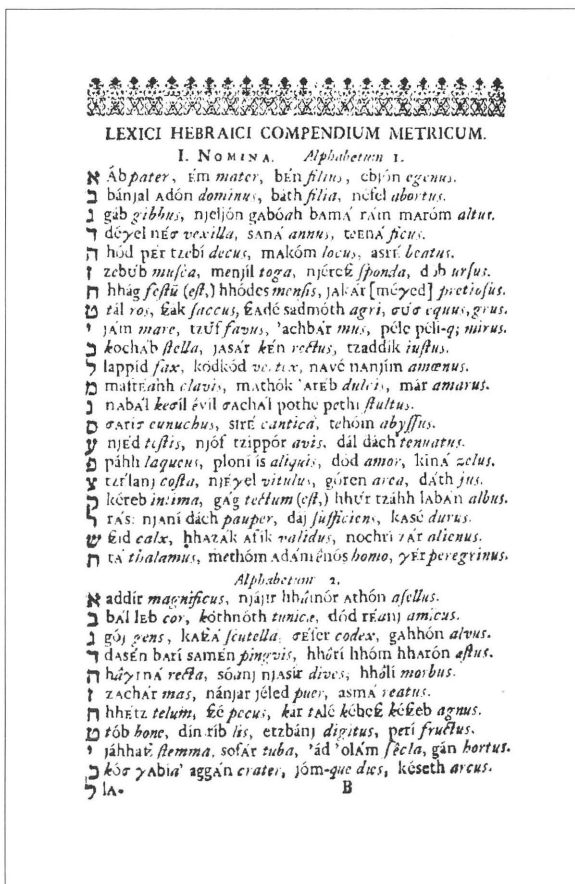 LEXICI HEBRAICI COMPENDIUM METRICUM.
I. NOMINA. Alphabetum 1.
א Áb pater, ém mater, bén filius, ebjón egenus.
ב bánjal adón dominus, báth filia, néfel abortus.
ג gáb gibbus, njeljón gabóah bamá rám maróm altus.
ד déγel néσ vexilla, saná annus, teená ficus.
ה hód pér tzebí decus, makóm locus, asré beatus.
ז zebúb musca, menjíl toga, sponda, dób ursus.
ח hhág festũ (est,) hhódes mensis, jakár [méγed] pretiosus.
ט tál ros, saccus, sadmóth agri, σúσ equus, grus.
י jám mare, tzúf favus, 'achbár mus, péle péli-q; mirus.
כ kocháb stella, jasár kén rectus, tzaddík iustus.
ל lappíd fax, kódkód vertex, navé nanjím amœnus.
מ clavis, mathók 'aréb dulcis, már amarus.
נ nabál kesíl évil σachál pothe pethi stultus.
ס σarís eunuchus, siré cantica, tehóm abyssus.
ע njéd testis, njóf tzippór avis, dál dách tenuatus.
פ páhh laqueus, ploni is aliquis, dód amor, kiná zelus.
צ costa, njéγel vitulus, góren area, dáth jus.
ק kéreb intima, gág tectum (est,) hhúr tzáhh labán albus.
ר rás: njaní dách pauper, daj sufficiens, kasé durus.
ש calx, hhazák afík validus, nochrí zár alienus.
ת tá thalamus, methóm adám énós homo, γér peregrinus.
Alphabetum 2.
א addír magnificus, njájir hhámór athón asellus.
ב bál léb cor, kóthnóth tunicæ, dód réanj amicus.
ג gój gens, scutella, σéfer codex, gahhón alvus.
ד dasén barí samén pinguis, hhórí hhóm hharón æstus.
ה recta, sóanj njasír dives, hhólí morbus.
ז zachár mas, nánjar jéled puer, asmá reatus.
ח hhétz telum, pecus, kar talé agnus.
ט tób bone, din ríb lis, etzbánj digitus, perí fructus.
י stemma, sofár tuba, 'ád 'olám sécla, gán hortus.
כ kóσ γabia' aggán crater, jóm-que dies, késeth arcus.
ל la-
B